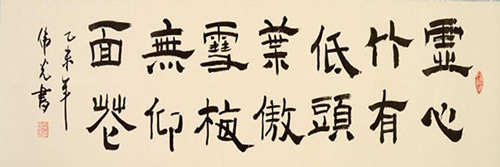 虛心
竹有
低頭
葉傲
雪梅
無仰
面花
乙未年
伟光書